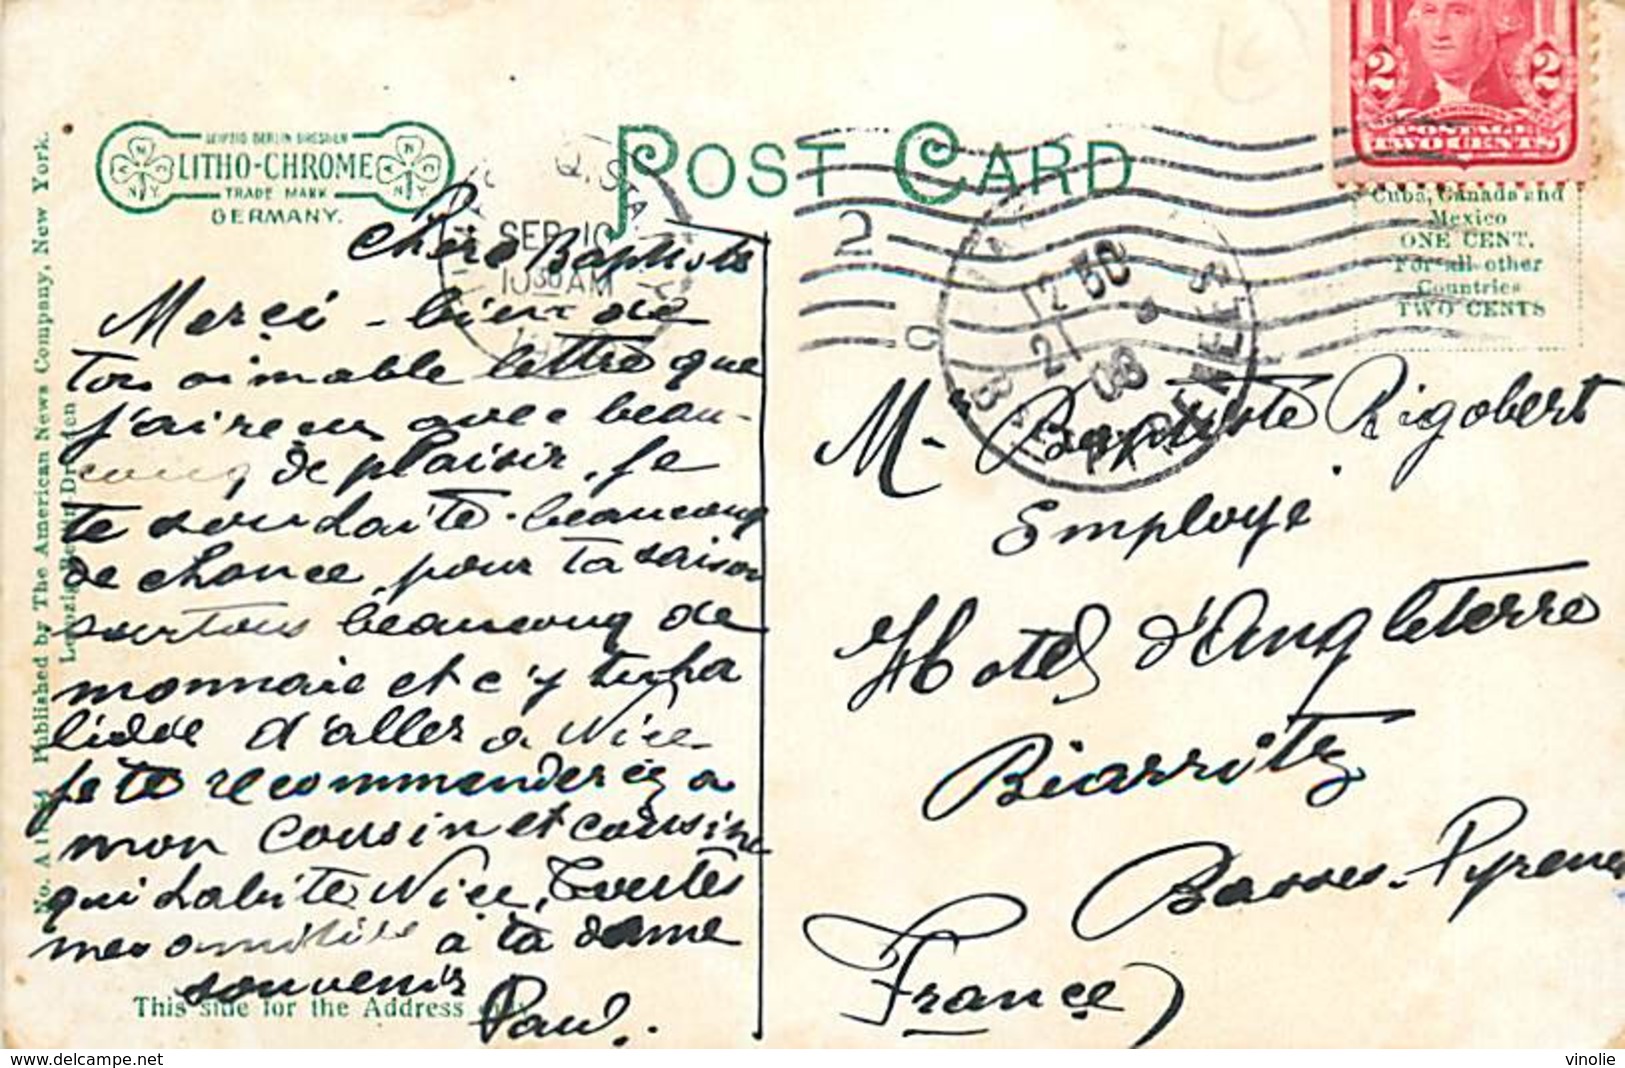 LEIPZIG BERLIN DRESDEN
LITHO-CHROME
TRADE MARK
GERMANY.
POST CARD
SEP 10
10 30 AM
2
12 50
21
08
BASSES PYRENEES
2 2
WASHINGTON
POSTAGE
TWO CENTS
Cuba, Canada and
Mexico
ONE CENT.
For all other
Countries
TWO CENTS
Published by The American News Company, New York.
Leipzig Berlin Dresden
Chere Baptiste
Merçi - bien de
ton aimable lettre que
j'ai reçu avec beau-
coup de plaisir, je
te souhaite - beaucoup
de chance pour ta saison
surtous beaucoup de
monnaie et c'y tu ha
lidée d'aller a Nice
je te recommanderez a
mon cousin et cousine
qui habite Nice, Toutes
mes amitiée a ta dame
souvenir
Paul.
This side for the Address only
M- Baptiste Rigobert
Employé
Hotel d'Angleterre
Biarritz
Basses-Pyrenees
France
vinolie